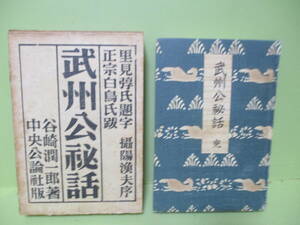 里見弴氏題字 攝陽漁夫序
正宗白鳥氏跋
武州公祕話
谷崎潤一郎著
中央公論社版
武州公祕話 完